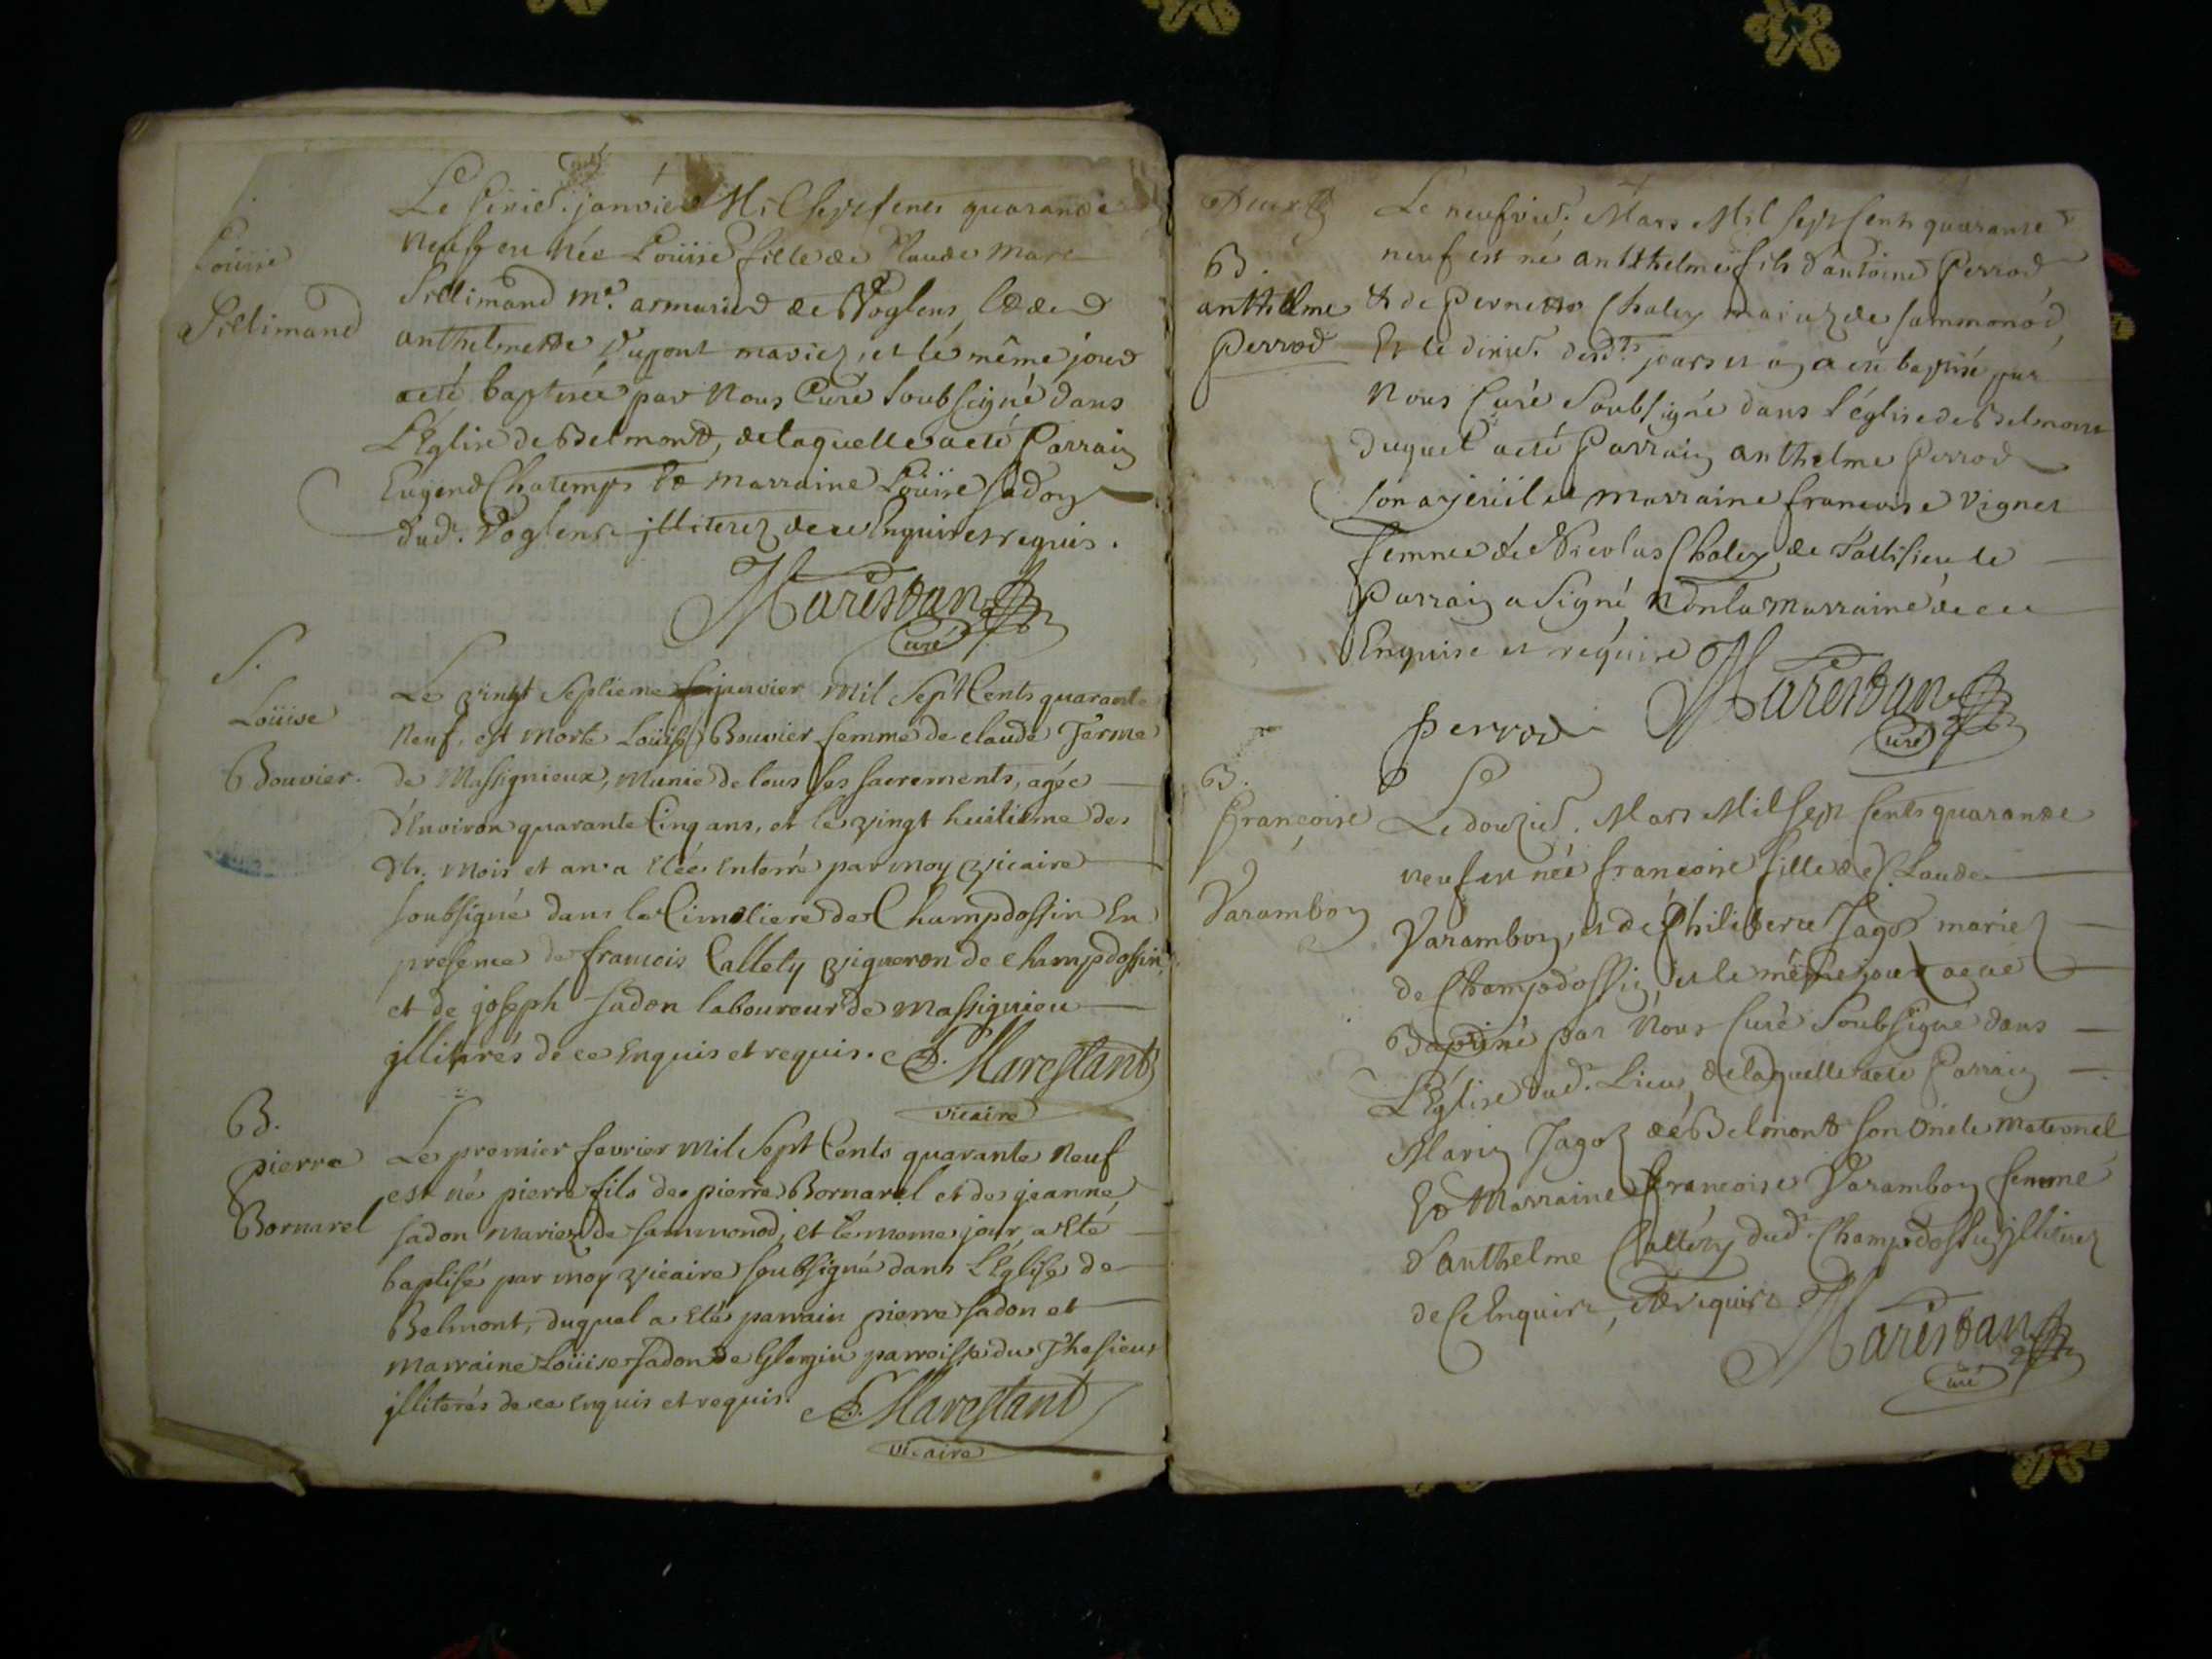 Louise
Sillimand
Le siziè. janvier Mil Sept cents quarante
neuf est née Louise fille de Claude Marc
Sillimand me. armurier de Voglens, et de
anthelmette Dupont mariez, et le même jour
a eté baptisée par Nous Curé Soubsigné dans
L'Eglise de Belmont, de laquelle a eté Parrain
Eugend Chatemps et marraine Loüise Sadon
dud. Voglens jlliterez de ce Enquis et requis.
Marestan
Curé
S.
Loüise
Bouvier.
Le vingt Septieme janvier Mil Sept Cents quarante
Neuf, est morte Loüise Bouvier femme de claude Ferme
de Massignieux, munie de tous ses sacrements, agée
d'Environ quarante Cinq ans, et le vingt huitieme des
dts. mois et an a Eté Enterré par moy vicaire
soubsigné dans le Cimetiere de Champdossin En
presence de francois Callety vigneron de champdossin,
et de joseph Sadon laboureur de Massignieu
jlliterés de ce Enquis et requis. Marestant
vicaire
B.
pierre
Bornarel
Le premier fevrier mil Sept Cents quarante Neuf
est né pierre fils de pierre Bornarel et de jeanne
Sadon Mariez de Sammonod, et le meme jour a Eté
baptisé par moy vicaire soubsigné dans L'Eglise de
Belmont, duquel a Eté parrain pierre Sadon et
marraine Loüise Sadon de parroisse du
jlliterés de ce Enquis et requis. Marestant
vicaire
B.
anthelme
Perrod
Le neufviè. Mars Mil Sept Cents quarante
neuf est né anthelme fils d'antoine Perrod
& de Pernette Chaley mariez de Sammonod,
Et le diziè. desdts jours et an a eté baptisé par
Nous Curé Soubsigné dans l'église de Belmont
duquel a eté Parrain anthelme Perrod
son ayeüil et marraine francoise Vignet
femme de Nicolas Chaley de le
Parrain a Signé, Non la Marraine de ce
Enquise et requise Marestan
Curé
Perrod
B.
Françoise
Varambon
Le douziè. Mars Mil Sept Cents quarante
neuf est née francoise fille de Claude
Varambon, et de Philiberte Jagot mariez
de Champdossin, et le même jour a eté
Baptisé par Nous Curé Soubsigné dans
L'Eglise dud. Lieu, de laquelle a eté Parrain
Marin Jagot de Belmont son Oncle maternel
Et Marraine francoise Varambon femme
d'anthelme Callety dud. Champdossin jlliterez
de Ce Enquis, et requis Marestan
Curé